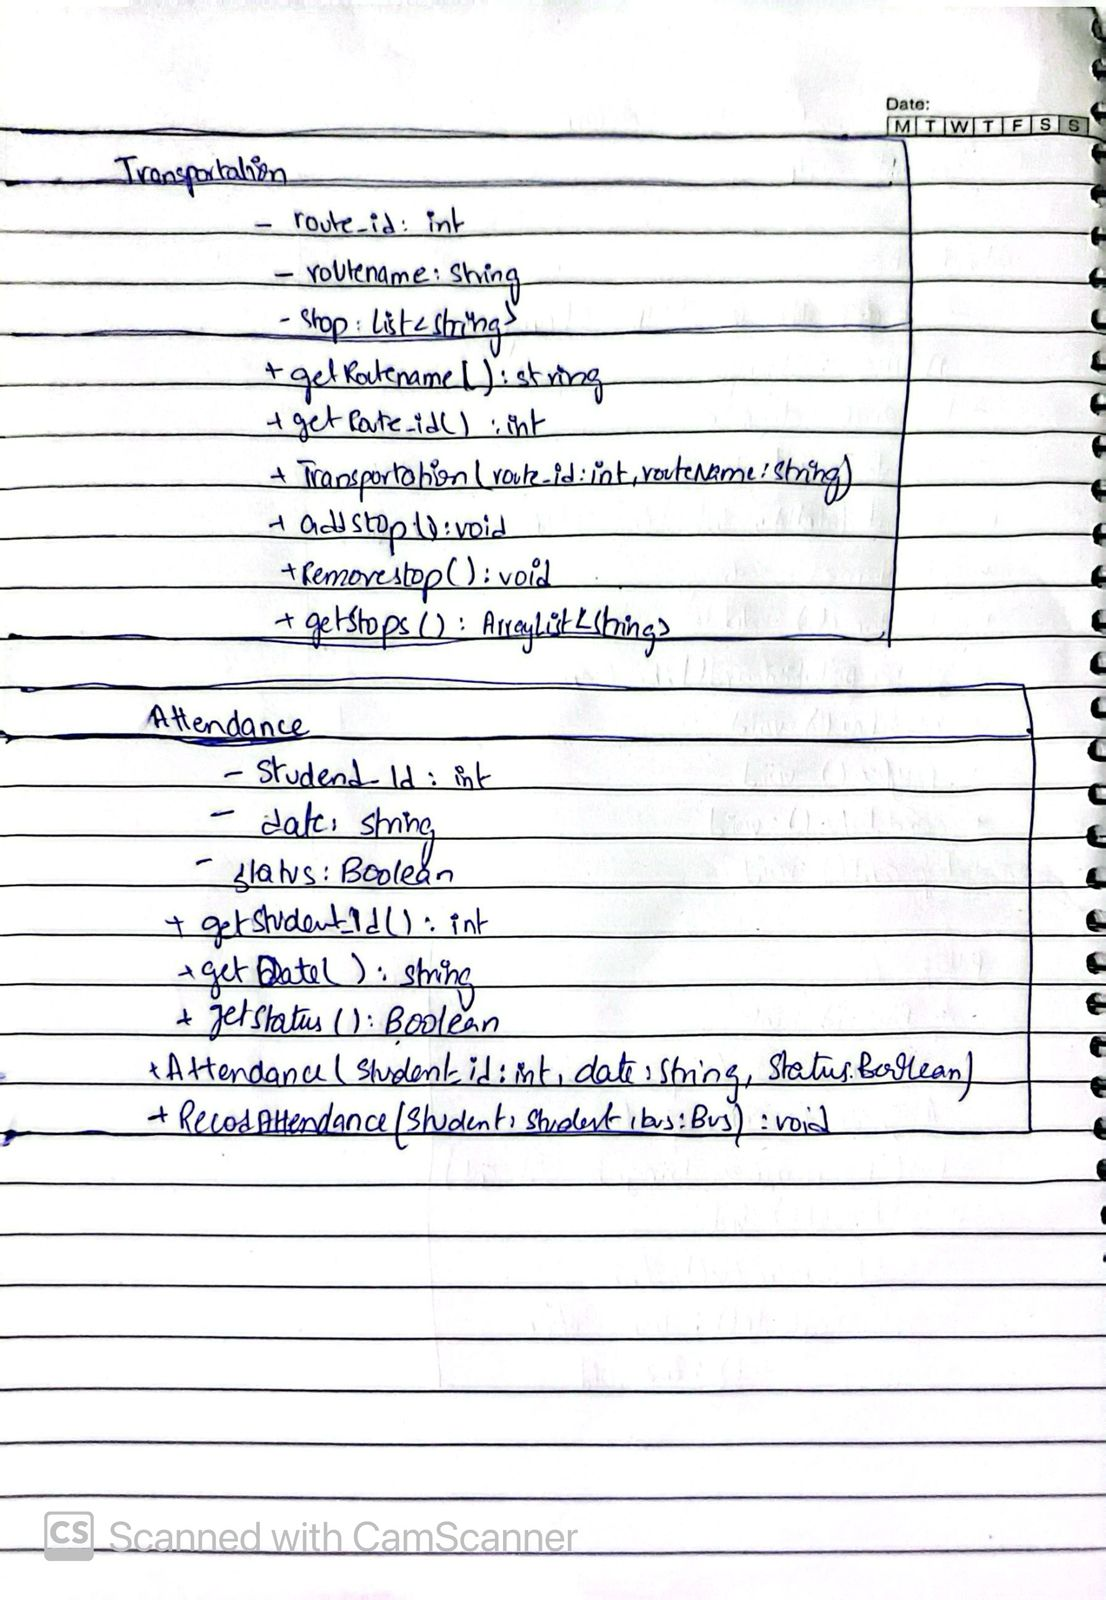 Date:
M T W T F S S
Transportation
- route_id: int
- routename: string
- stop: List<string>
+ getRoutename(): string
+ getRoute_id() : int
+ Transportation(route_id:int, routeName: string)
+ addstop():void
+Removestop(): void
+ getstops(): ArrayList<string>
Attendance
- Studend_Id: int
- date: string
- status: Boolean
+ getstudent_Id(): int
+get Date(): string
+ getstatus(): Boolean
+Attendance(student_id: int, date: string, status:Boolean)
+ RecodAttendance(student: student, bus:Bus) : void
CS Scanned with CamScanner